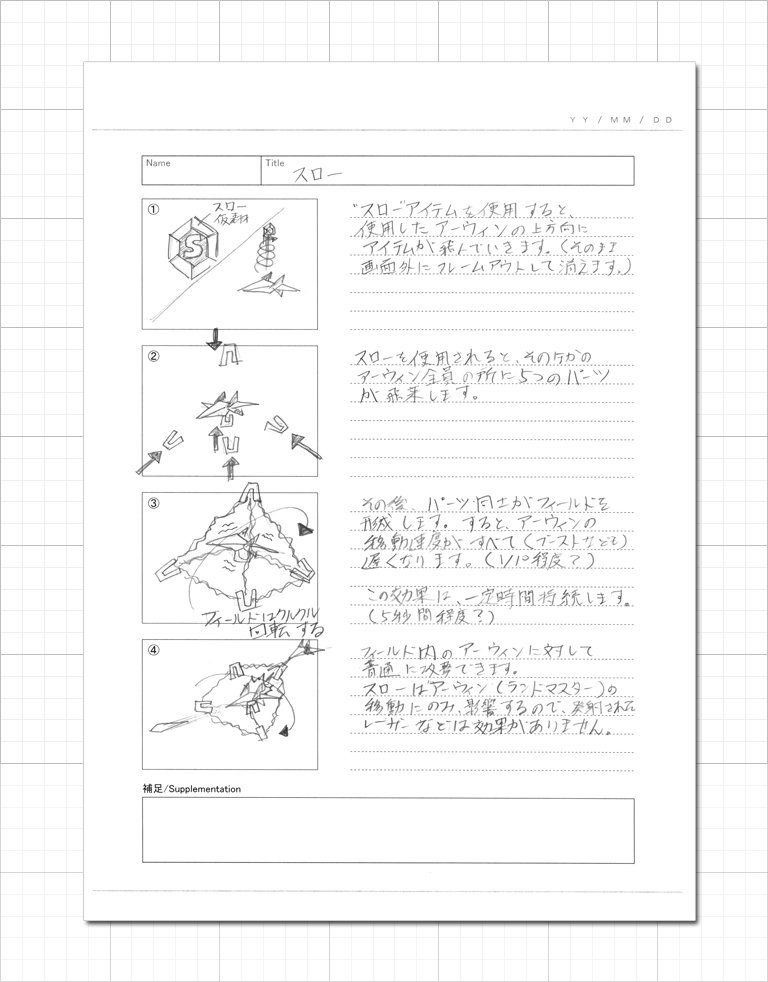 YY / MM / DD
Name
Title
スロー
①
スロー
仮素材
S
"スロー"アイテムを使用すると、
使用したアーウィンの上方向に
アイテムが飛んでいきます。(そのまま
画面外にフレームアウトして消えます。)
②
スローを使用されると、そのほかの
アーウィン全員の所に5つのパーツ
が飛来します。
③
フィールドはクルクル
回転する
その後、パーツ同士がフィールドを
形成します。すると、アーウィンの
移動速度がすべて(ブーストなども)
遅くなります。(1/10程度?)
この効果は、一定時間持続します。
(5秒間程度?)
④
フィールド内のアーウィンに対して
普通に攻撃できます。
スローはアーウィン(ランドマスター)の
移動にのみ、影響するので、発射された
レーザーなどは効果がありません。
補足/Supplementation